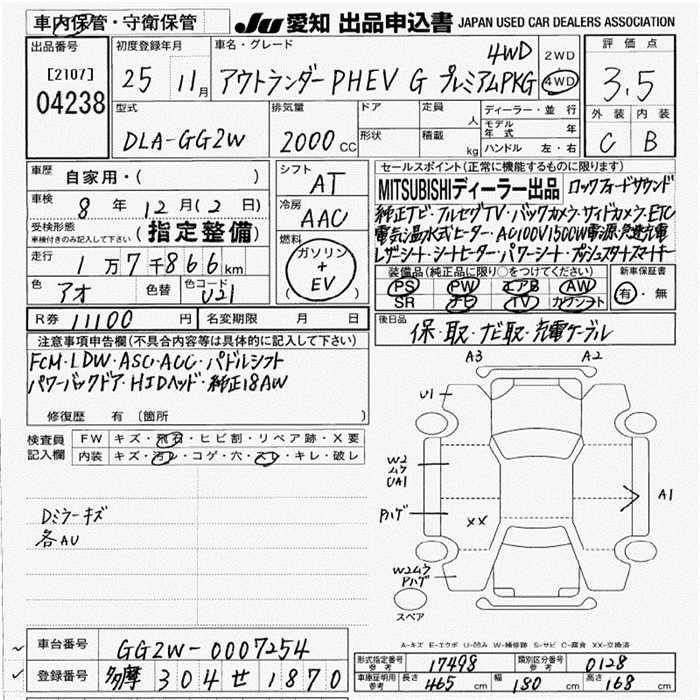 車内保管・守衛保管
JU 愛知 出品申込書 JAPAN USED CAR DEALERS ASSOCIATION
出品番号
[2107]
04238
初度登録年月
25 11月
車名・グレード
4WD
アウトランダーPHEV G プレミアムPKG
2WD
4WD
評価点
3.5
外装 内装
C B
型式
DLA-GG2W
排気量
2000 CC
ドア
形状
定員 人
積載 kg
ディーラー・並行
モデル年式 年
ハンドル 左・右
車歴 自家用・( )
車検 8 年 12 月 ( 2 日)
受検形態
車検付きのみ記入して下さい
(指定整備)
走行 1万7千866km
色 アオ 色替 色コード U21
シフト AT
冷房 AAC
燃料 ガソリン
+
EV
( )
セールスポイント(正常に機能するものに限ります)
MITSUBISHIディーラー出品 ロックフォードサウンド
純正ナビ・フルセグTV・バックカメラ・サイドカメラ・ETC
電気温水式ヒーター・AC100V1500W電源・急速充電
レザーシート・シートヒーター・パワーシート・プッシュスタートスマートキー
装備品(純正品に限り○をつけてください)
PS PW エアB AW
SR ナビ TV カワシート
新車保証書
有・無
R券 11100 円 名変期限 月 日
後日品
保・取・ナビ取・充電ケーブル
注意事項申告欄(不具合内容等は具体的に記入して下さい)
FCM・LDW・ASC・ACC・パドルシフト
パワーバックドア・HIDヘッド・純正18AW
修復歴 有 〔箇所 〕
検査員
記入欄
FW キズ・飛石・ヒビ割・リペア跡・X要
内装 キズ・汚レ・コゲ・穴・スレ・キレ・破レ
Dミラーキズ
各AU
A3 A2
U1
W2
ムラ
UA1
Pハゲ
XX
A1
W2ムラ
Pハゲ
スペア
A-キズ E-エクボ U-凹み W-補修跡 S-サビ C-腐食 XX-交換済
車台番号 GG2W-0007254
登録番号 多摩 304 せ 1870
形式指定番号
参考
17498
類別区分番号
参考
0128
車庫証明用
参考
長さ 465 cm 幅 180 cm 高さ 168 cm